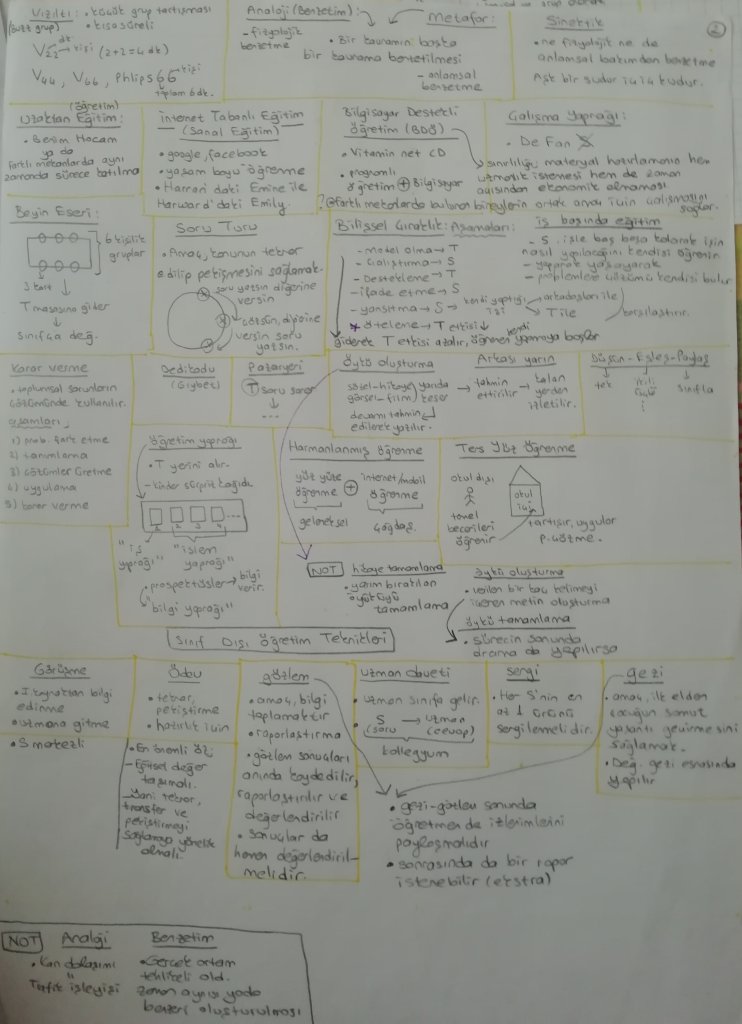 Vızıltı: • küçük grup tartışması
(Buzz grup) • kısa süreli
V22 dk kişi (2+2=4 dk)
V44, V66, Philips 66 kişi
toplam 6 dk.
Analoji (Benzetim):
- fizyolojik
benzetme
Metafor:
• Bir kavramın başka
bir kavrama benzetilmesi
- anlamsal
benzetme
Sinektik
• ne fizyolojik ne de
anlamsal bakımdan benzetme
Aşk bir sudur iç iç kudur.
2
(öğretim)
Uzaktan Eğitim:
• Benim Hocam
ya da
farklı mekanlarda aynı
zamanda sürece katılma
İnternet Tabanlı Eğitim
(Sanal Eğitim)
• google, facebook
• yaşam boyu öğrenme
• Harran'daki Emine ile
Harward'daki Emily.
Bilgisayar Destekli
Öğretim (BDÖ)
• Vitamin net CD
• programlı
öğretim + Bilgisayar
Çalışma Yaprağı:
• De Fan
sınırlılığı materyal hazırlamanın hem
uzmanlık istemesi hem de zaman
açısından ekonomik olmaması
farklı mekanlarda bulunan bireylerin ortak amaç için çalışmasını
sağlar.
Beyin Eseri:
6 kişilik
gruplar
3 kart
T masasına gider
sınıfça değ.
Soru Turu
• Amaç, konunun tekrar
edilip pekişmesini sağlamak.
soru yazsın diğerine
versin
çözsün, diğerine
versin soru
yazsın.
Bilişsel Çıraklık: Aşamaları:
- Model olma → T
- Çalıştırma → S
- Destekleme → T
- ifade etme → S
- yansıtma → S
kendi yaptığı
işi
arkadaşları ile
T ile
karşılaştırır.
* öteleme → T etkisi
giderek T etkisi azalır, öğrenen kendi yapmaya başlar
iş başında eğitim
- S. işle baş başa kalarak işin
nasıl yapılacağını kendisi öğrenir
- yaparak yaşayarak
- problemlere çözümü kendisi bulur
Karar verme
• toplumsal sorunların
çözümünde kullanılır.
aşamaları
1) prob. fark etme
2) tanımlama
3) çözümler üretme
4) uygulama
5) karar verme
Dedikodu
(Gıybet)
Pazaryeri
T soru sorar
...
Öykü oluşturma
sözel-hikaye
görsel-film
yarıda
keser
devamı tahmin
edilerek yazılır.
Arkası yarın
→ tahmin
ettirilir.
→ kalan
yerden
izletilir.
Düşün-Eşleş-Paylaş
tek
ikili
üçlü
sınıfla
öğretim yaprağı
• T yerini alır.
- kinder sürpriz kağıdı
1 2 3 4
"iş
yaprağı"
"işlem
yaprağı"
• prospektüsler → bilgi
verir.
"bilgi yaprağı"
Harmanlanmış öğrenme
yüz yüze
öğrenme
+
internet/mobil
öğrenme
geleneksel
çağdaş.
Ters Yüz Öğrenme
okul dışı
temel
becerileri
öğrenir
okul
içi
tartışır, uygular
p. çözme.
NOT
hikaye tamamlama
• yarım bırakılan
öyküyü
tamamlama
öykü oluşturma
• verilen bir kaç kelimeyi
içeren metin oluşturma
öykü tamamlama
• sürecin sonunda
drama da yapılırsa
Sınıf Dışı Öğretim Teknikleri
Görüşme
• I. kaynaktan bilgi
edinme
• uzmana gitme
• S merkezli
Ödev
• tekrar,
pekiştirme
• hazırlık için
• En önemli öz:
- Eğitsel değer
taşımalı.
- Yani tekrar,
transfer ve
pekiştirmeyi
sağlamaya yönelik
olmalı.
gözlem
• amaç, bilgi
toplamaktır
• raporlaştırma
• gözlem sonuçları
anında kaydedilir,
raporlaştırılır ve
değerlendirilir
• sonuçlar da
hemen değerlendiril-
melidir.
uzman daveti
• uzman sınıfa gelir.
• S → uzman
(soru) (cevap)
kollegyum
sergi
• Her S'nin en
az 1 ürünü
sergilenmelidir.
gezi
• amaç, ilk elden
çocuğun somut
yaşantı geçirmesini
sağlamak.
• Değ. gezi esnasında
yapılır
• gezi-gözlem sonunda
öğretmen de izlenimlerini
paylaşmalıdır
• sonrasında da bir rapor
istenebilir (ekstra)
NOT
Analoji
• Kan dolaşımı
"
Trafik işleyişi
Benzetim
• Gerçek ortam
tehlikeli old.
zaman aynısı yada
benzeri oluşturulması